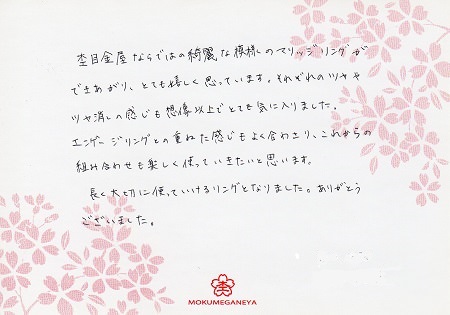 杢目金屋ならではの綺麗な模様のマリッジリングが
できあがり、とても嬉しく思っています。それぞれのツヤや
ツヤ消しの感じも想像以上でとても気に入りました。
エンゲージリングとの重ねた感じもよく合わさり、これからの
組み合わせも楽しく使っていきたいと思います。
長く大切に使っていけるリングとなりました。ありがとう
ございました。
杢
MOKUMEGANEYA